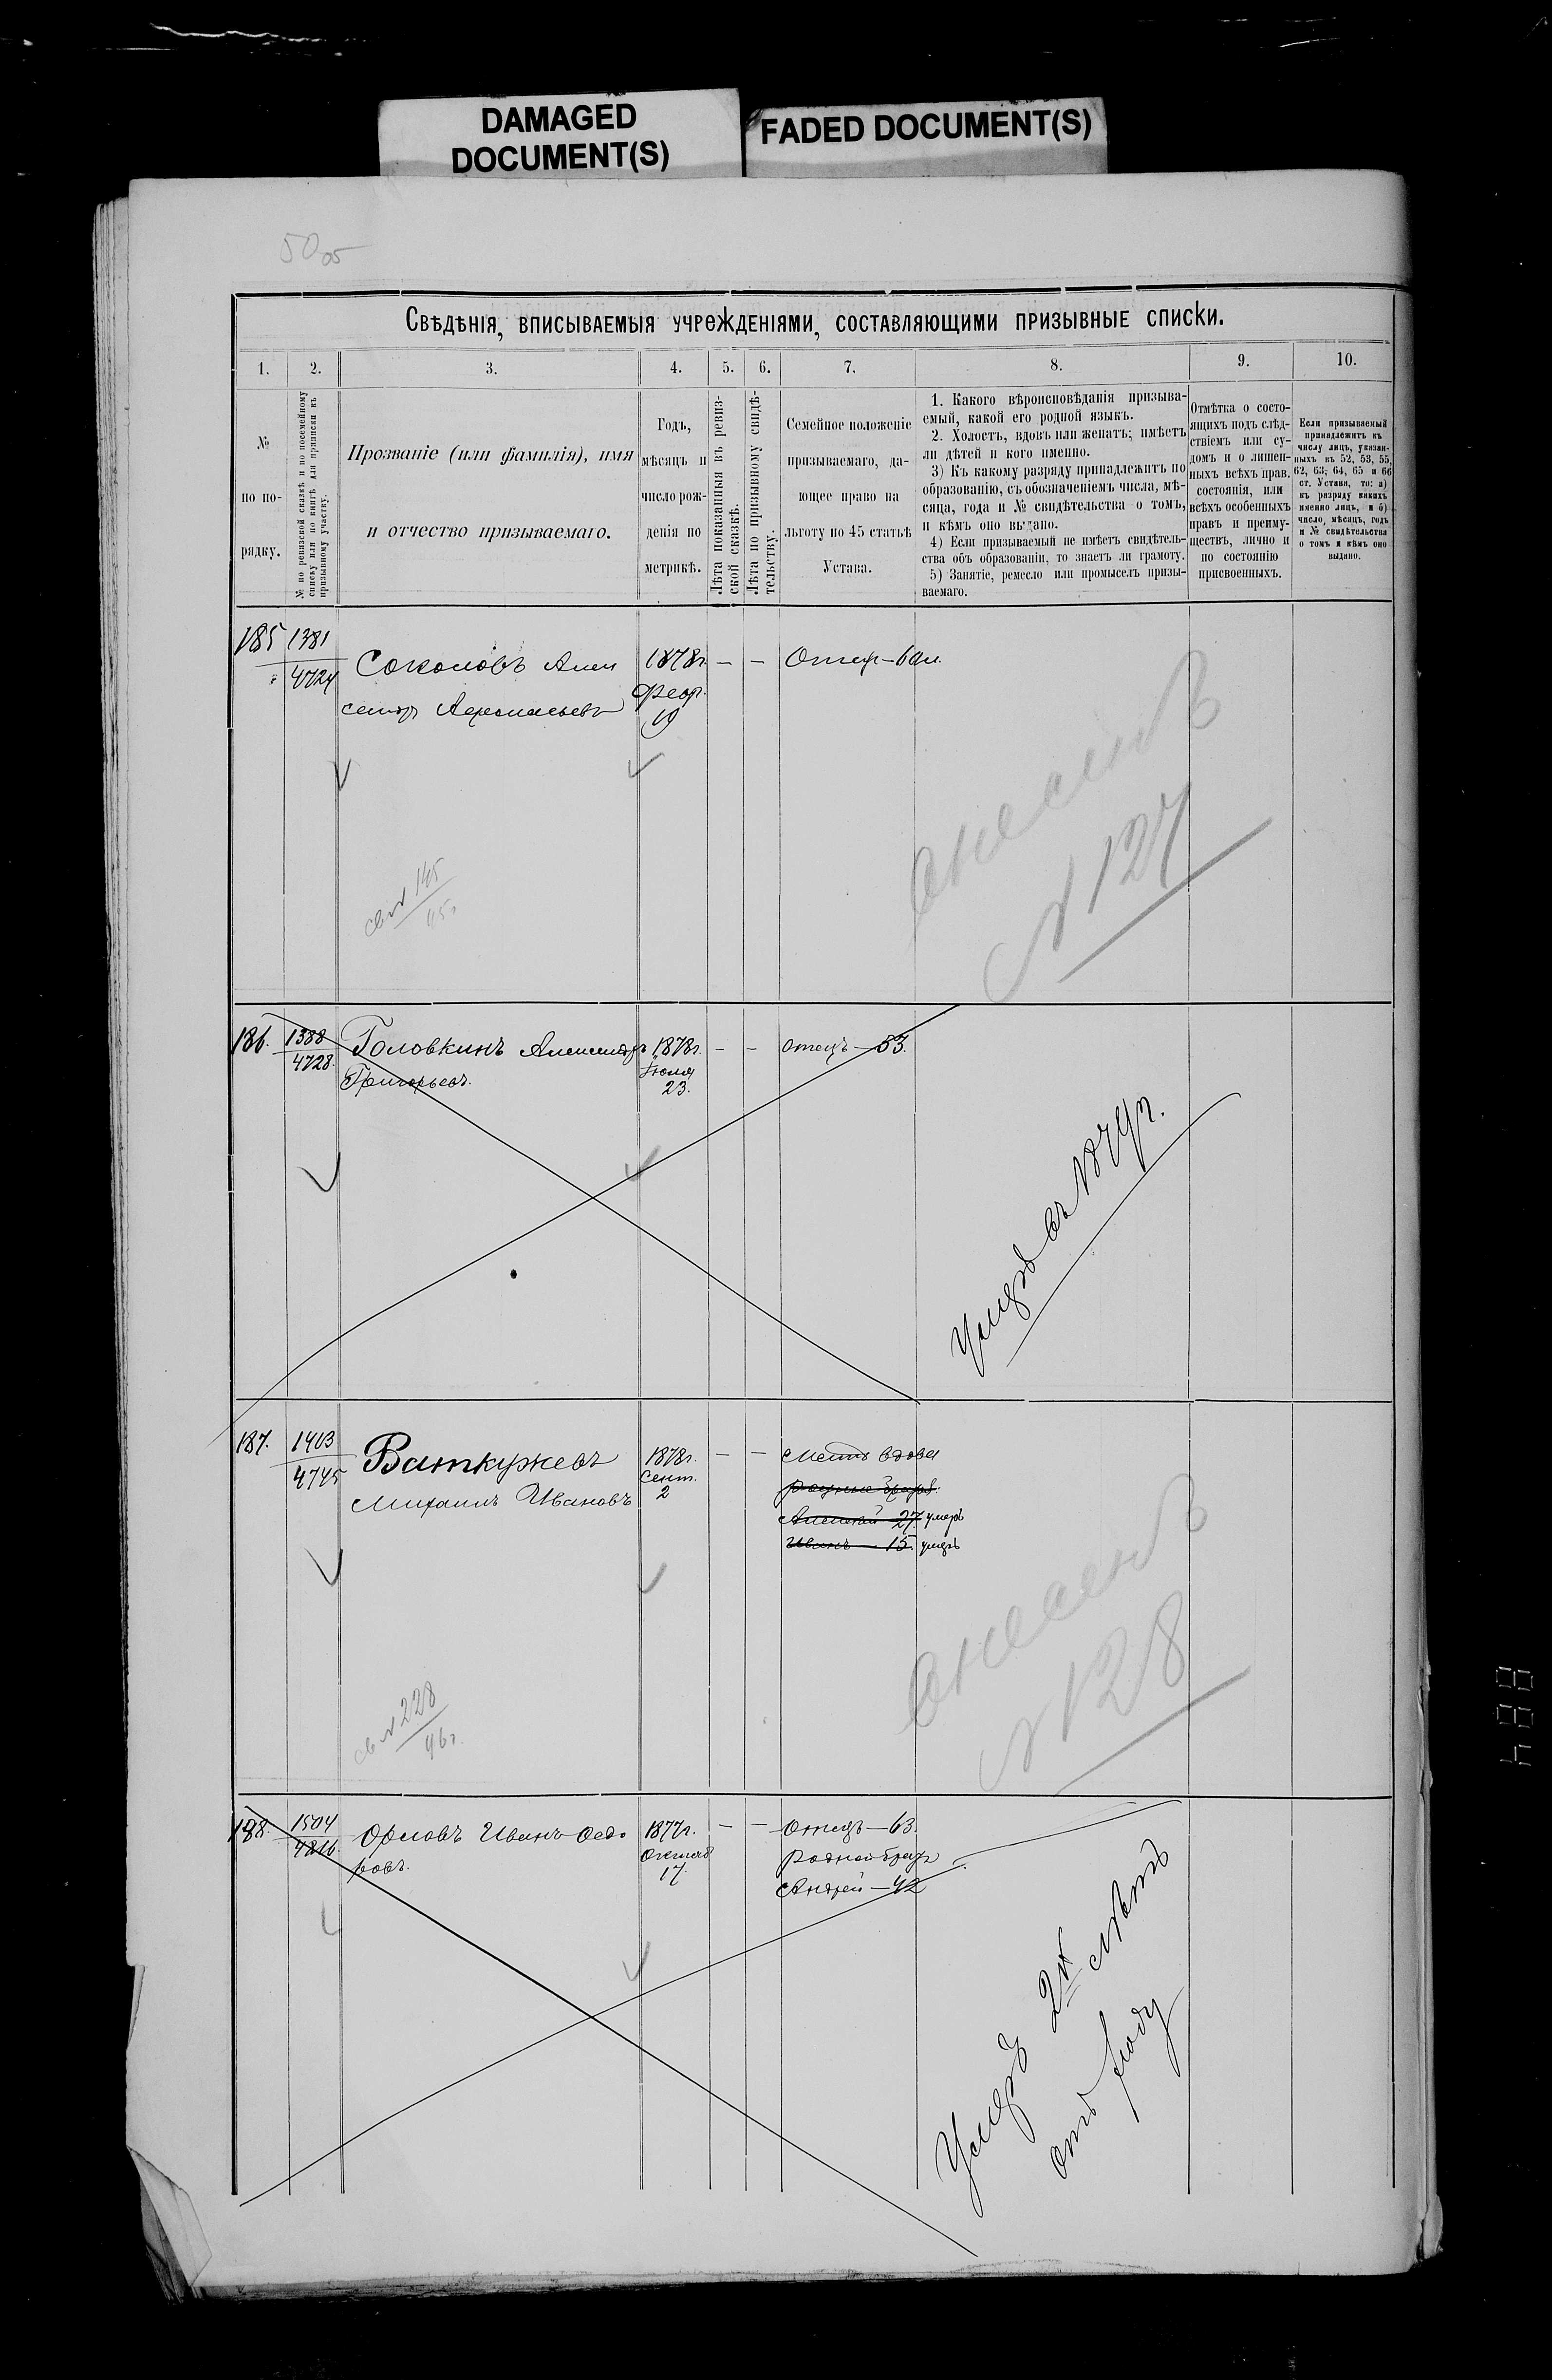 DAMAGED
DOCUMENT(S)
FADED DOCUMENT(S)
Свѣдѣнія, вписываемыя учрежденіями, составляющими призывные списки.
1. 2. 3. 4. 5. 6. 7. 8. 9. 10.
№
по по-
рядку.
№ по ревизской сказкѣ и по посемейному
списку или по книгѣ для приписки къ
призывному участку.
Прозваніе (или фамилія), имя
и отчество призываемаго.
Годъ,
мѣсяцъ и
число рож-
денія по
метрикѣ.
Лѣта показанныя въ ревиз-
ской сказкѣ.
Лѣта по призывному свидѣ-
тельству.
Семейное положеніе
призываемаго, да-
ющее право на
льготу по 45 статьѣ
Устава.
1. Какого вѣроисповѣданія призыва-
емый, какой его родной языкъ.
2. Холостъ, вдовъ или женатъ; имѣетъ
ли дѣтей и кого именно.
3) Къ какому разряду принадлежитъ по
образованію, съ обозначеніемъ числа, мѣ-
сяца, года и № свидѣтельства о томъ,
и кѣмъ оно выдано.
4) Если призываемый не имѣетъ свидѣтель-
ства объ образованіи, то знаетъ ли грамоту.
5) Занятіе, ремесло или промыселъ призы-
ваемаго.
Отмѣтка о состо-
ящихъ подъ слѣд-
ствіемъ или су-
домъ и о лишен-
ныхъ всѣхъ прав.
состоянія, или
всѣхъ особенныхъ
правъ и преиму-
ществъ, лично и
по состоянію
присвоенныхъ.
Если призываемый
принадлежитъ къ
числу лицъ, указан-
ныхъ въ 52, 53, 55,
62, 63, 64, 65 и 66
ст. Устава, то: а)
къ разряду какихъ
именно лицъ, и б)
число, мѣсяцъ, годъ
и № свидѣтельства
о томъ и кѣмъ оно
выдано.
185 1381
4724
Соколовъ Алек
сандръ
1878г.
Февр.
19
— —
Отец — 60 л.
внесенъ
№ 127
св № 145
95г
186. 1388
4728.
Головкинъ Александръ
Григорьевъ.
1878г.
Іюля
23.
— —
отецъ — 53.
Умеръ въ 1879г.
187. 1403
4745
Ваткужевъ
Михаилъ Ивановъ
1878г.
Сент.
2
— —
Мать вдова
родные братья
Алексѣй 27. умеръ
Иванъ — 15. умеръ
внесенъ
№ 128
св № 228
96г.
188. 1504
4816.
Орловъ Иванъ Ѳедо
ровъ.
1877г.
Октяб
17.
— —
Отецъ — 63.
Родной братъ
Андрей — 42
Умеръ 2х лѣтъ
отъ роду
884